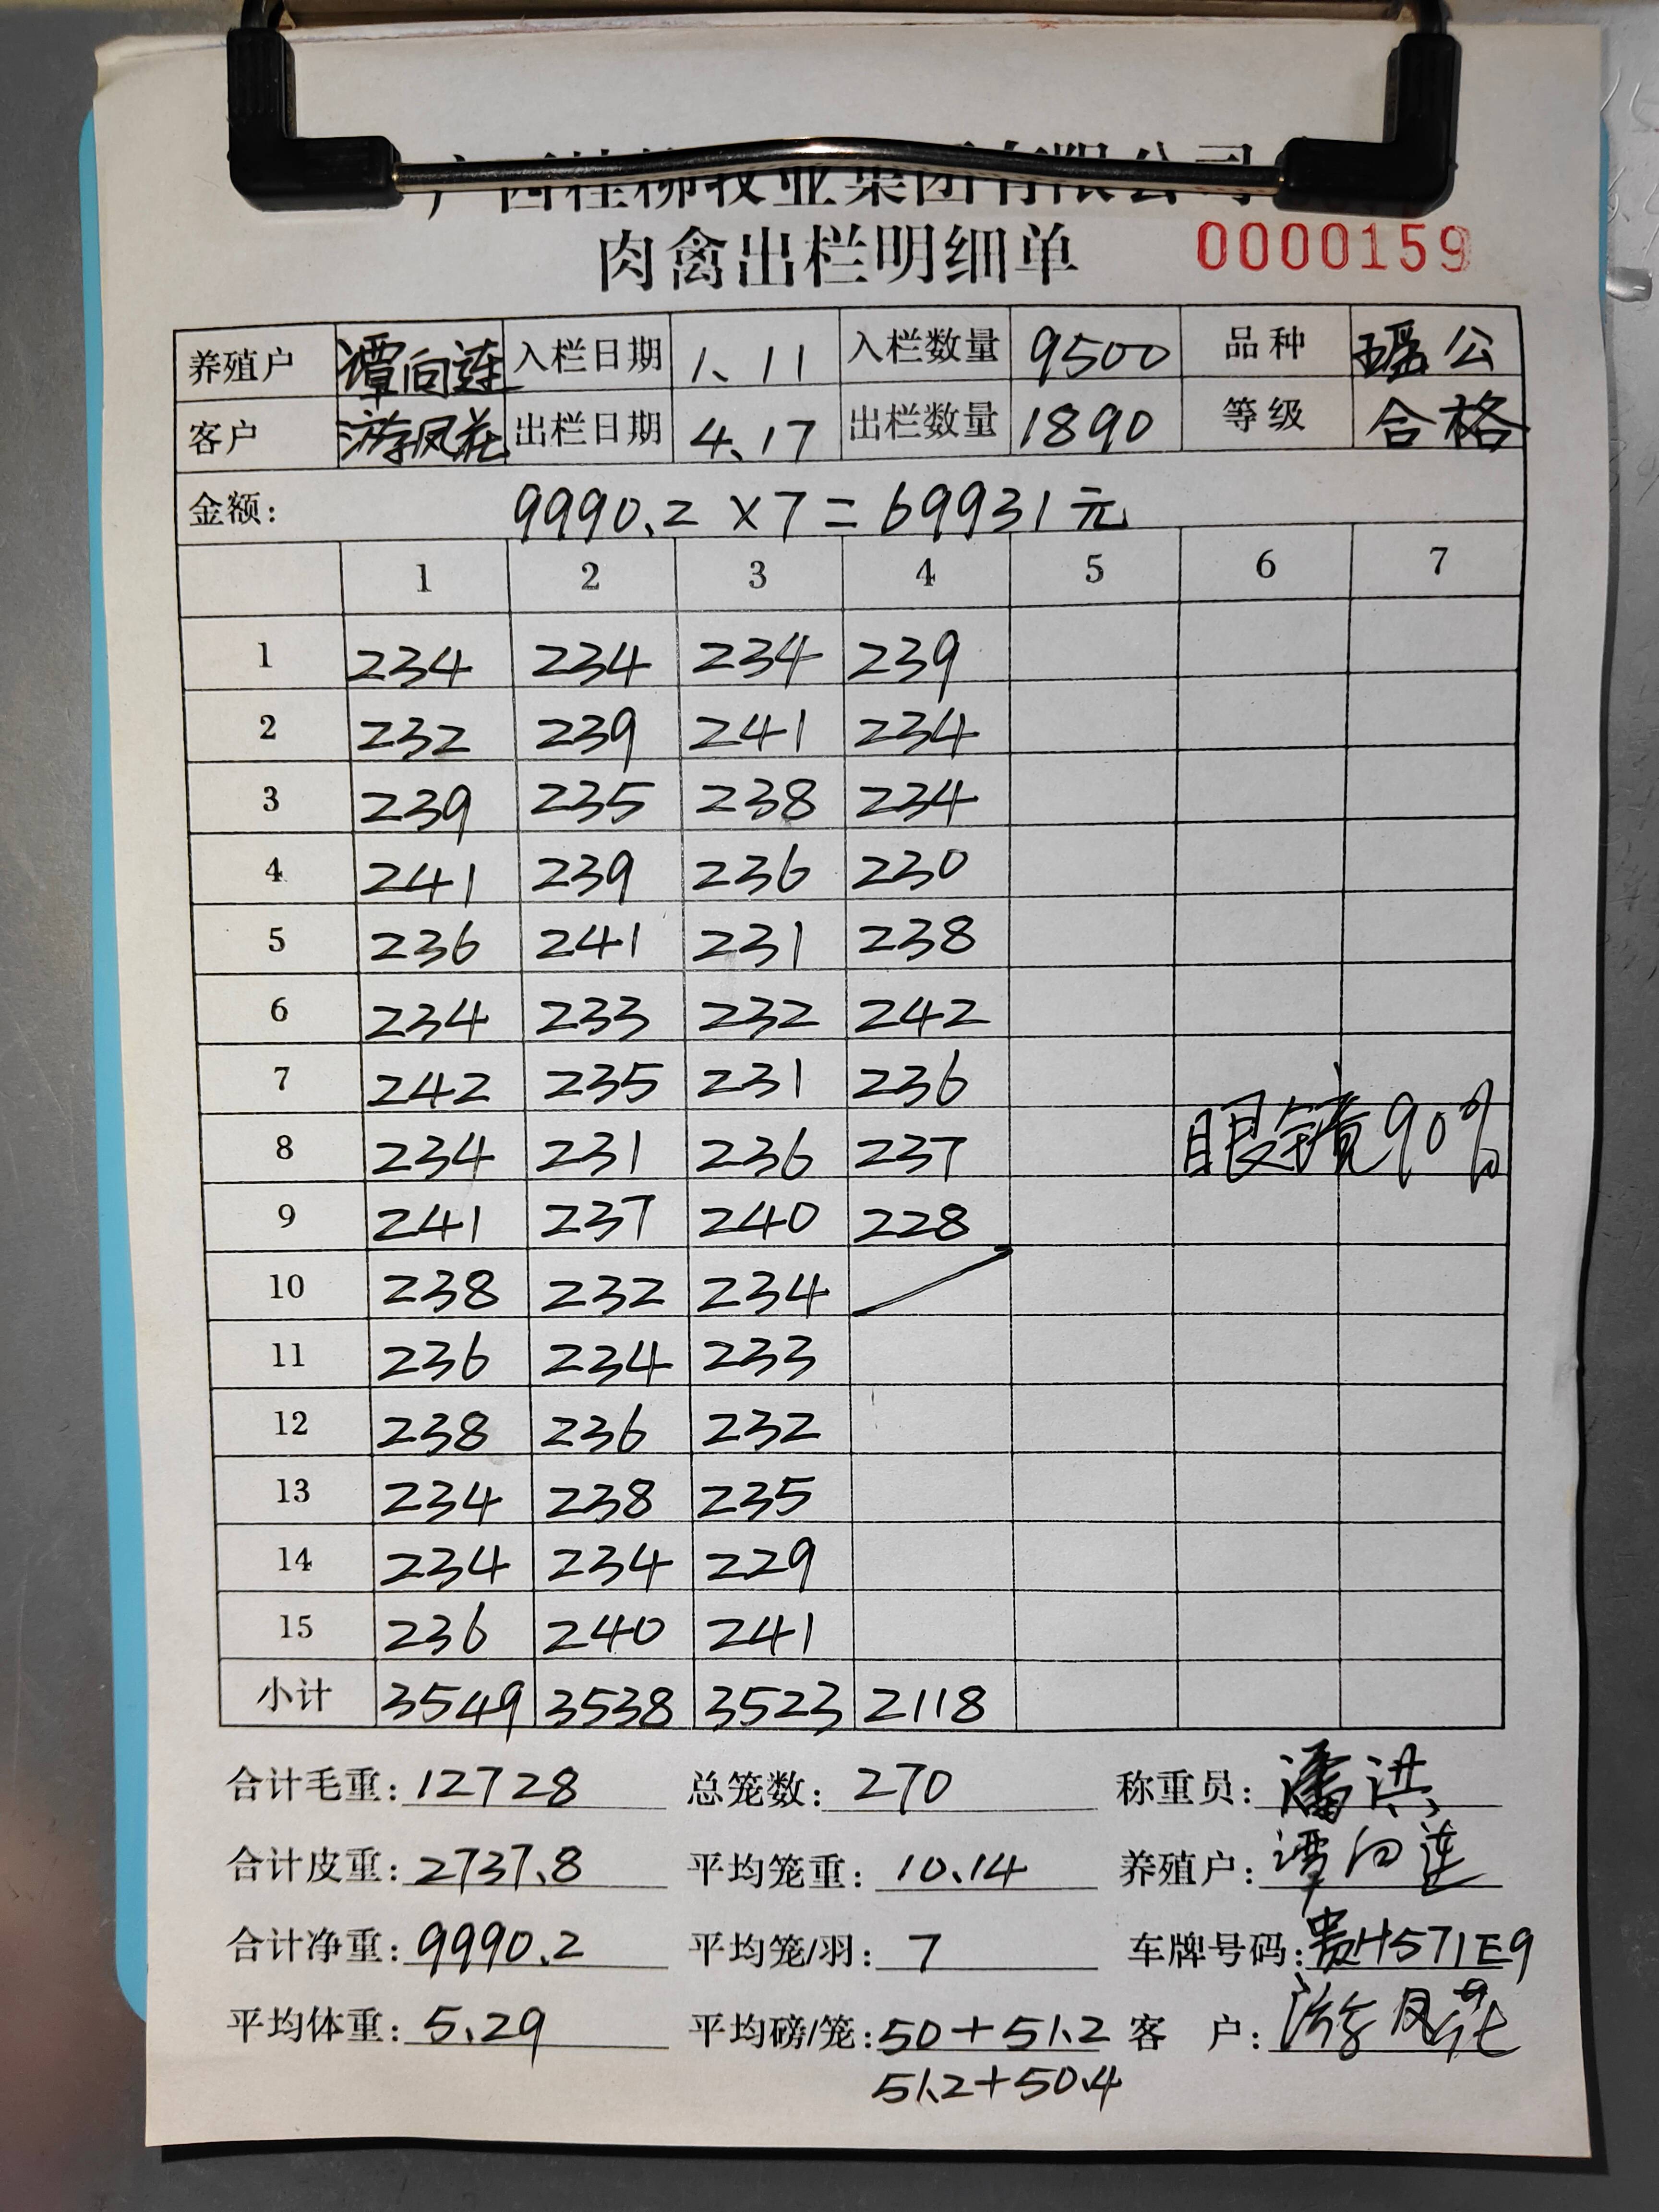 广西桂柳牧业集团有限公司
肉禽出栏明细单 0000159
养殖户 谭向莲 入栏日期 1、11 入栏数量 9500 品种 瑶公
客户 游凤花 出栏日期 4、17 出栏数量 1890 等级 合格
金额: 9990.2 ×7=69931元
1 2 3 4 5 6 7
1 234 234 234 239
2 232 239 241 234
3 239 235 238 234
4 241 239 236 230
5 236 241 231 238
6 234 233 232 242
7 242 235 231 236
8 234 231 236 237 眼镜90%
9 241 237 240 228
10 238 232 234
11 236 234 233
12 238 236 232
13 234 238 235
14 234 234 229
15 236 240 241
小计 3549 3538 3523 2118
合计毛重: 12728 总笼数: 270 称重员: 潘洪
合计皮重: 2737.8 平均笼重: 10.14 养殖户: 谭向莲
合计净重: 9990.2 平均笼/羽: 7 车牌号码: 贵H571E9
平均体重: 5.29 平均磅/笼: 50+51.2 客 户: 游凤花
51.2+50.4